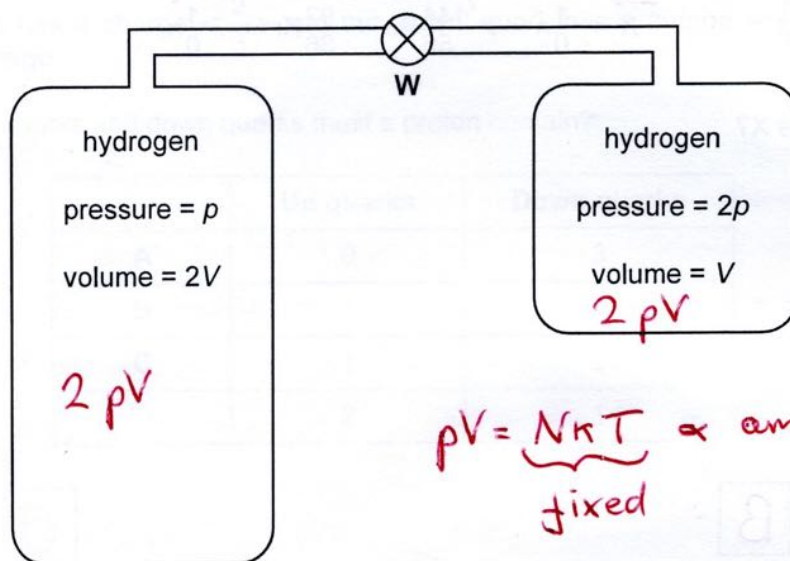 W
hydrogen
pressure = p
volume = 2V
2 pV
hydrogen
pressure = 2p
volume = V
2 pV
pV = NkT ∝
fixed